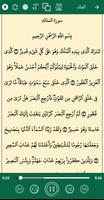 الملك
سورة الملك
بِسْمِ اللَّهِ الرَّحْمَنِ الرَّحِيمِ
تَبَارَكَ الَّذِي بِيَدِهِ الْمُلْكُ وَهُوَ عَلَى كُلِّ شَيْءٍ
قَدِيرٌ ۝ الَّذِي خَلَقَ الْمَوْتَ وَالْحَيَاةَ لِيَبْلُوَكُمْ
أَيُّكُمْ أَحْسَنُ عَمَلًا وَهُوَ الْعَزِيزُ الْغَفُورُ ۝ الَّذِي
خَلَقَ سَبْعَ سَمَاوَاتٍ طِبَاقًا مَا تَرَى فِي خَلْقِ
الرَّحْمَنِ مِنْ تَفَاوُتٍ فَارْجِعِ الْبَصَرَ هَلْ تَرَى مِنْ
فُطُورٍ ۝ ثُمَّ ارْجِعِ الْبَصَرَ كَرَّتَيْنِ يَنْقَلِبْ إِلَيْكَ
الْبَصَرُ خَاسِئًا وَهُوَ حَسِيرٌ ۝ وَلَقَدْ زَيَّنَّا السَّمَاءَ
الدُّنْيَا بِمَصَابِيحَ وَجَعَلْنَاهَا رُجُومًا لِلشَّيَاطِينِ
وَأَعْتَدْنَا لَهُمْ عَذَابَ السَّعِيرِ ۝ وَلِلَّذِينَ كَفَرُوا